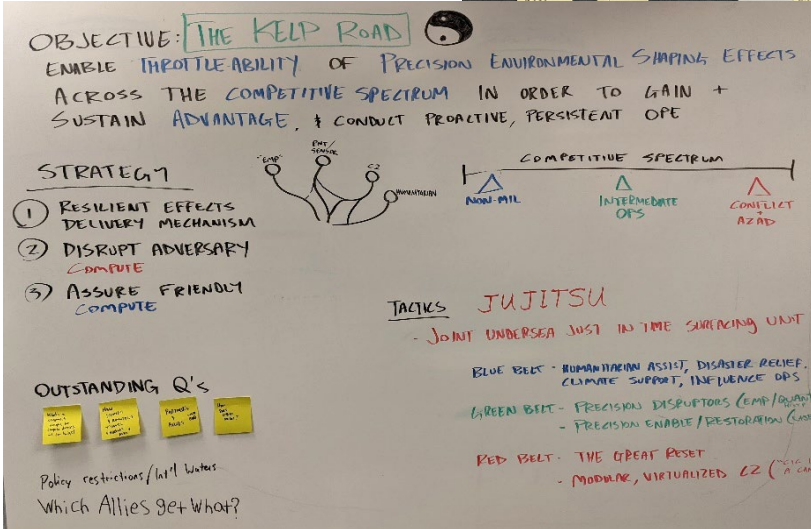 OBJECTIVE: THE KELP ROAD
ENABLE THROTTLE-ABILITY OF PRECISION ENVIRONMENTAL SHAPING EFFECTS
ACROSS THE COMPETITIVE SPECTRUM IN ORDER TO GAIN +
SUSTAIN ADVANTAGE, & CONDUCT PROACTIVE, PERSISTENT OPE
STRATEGY
① RESILIENT EFFECTS
DELIVERY MECHANISM
② DISRUPT ADVERSARY
COMPUTE
③ ASSURE FRIENDLY
COMPUTE
"EMP"
PNT/
SENSOR
C2
HUMANITARIAN
COMPETITIVE SPECTRUM
NON-MIL
INTERMEDIATE
OPS
CONFLICT
+
AZAD
TACTICS JUJITSU
- JOINT UNDERSEA JUST IN TIME SURFACING UNIT
BLUE BELT - HUMANITARIAN ASSIST, DISASTER RELIEF,
CLIMATE SUPPORT, INFLUENCE OPS
GREEN BELT - PRECISION DISRUPTORS (EMP/QUANT
- PRECISION ENABLE/RESTORATION
RED BELT - THE GREAT RESET
- MODULAR, VIRTUALIZED C2
OUTSTANDING Q's
Policy restrictions/Int'l Waters
Which Allies get What?